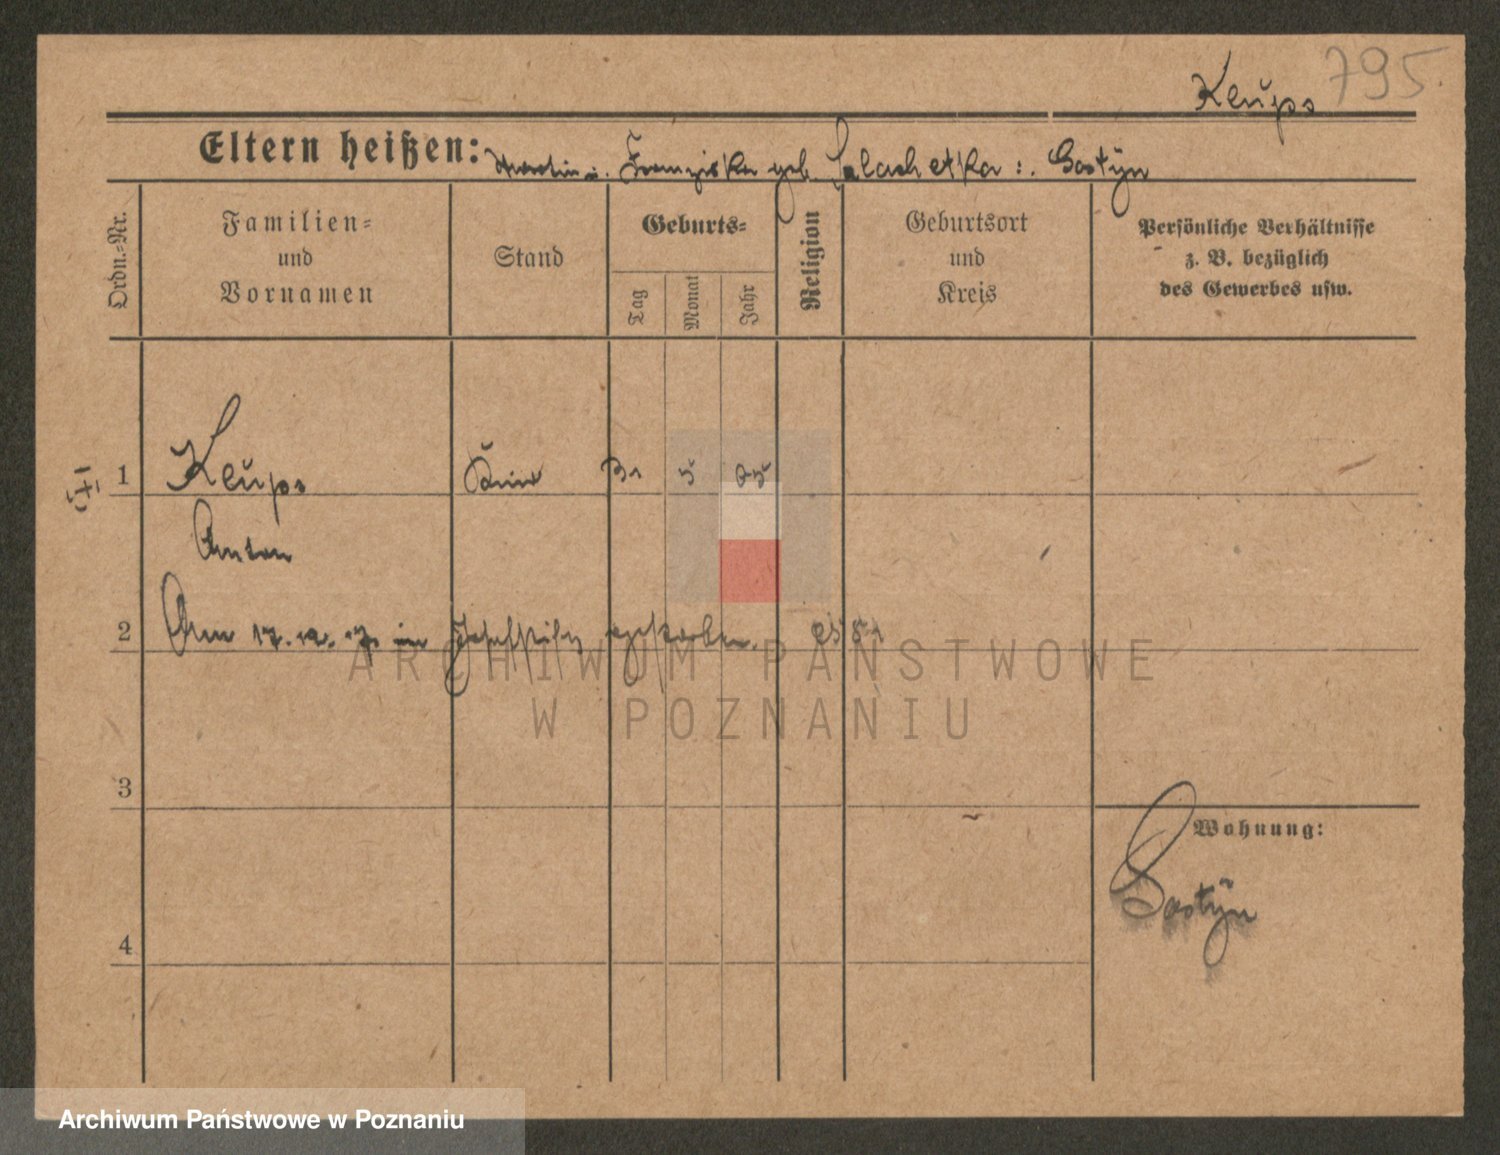 795.
Klups
Eltern heißen: Martin u. Franziska geb. Szlachetka : Gostÿn
Ordn.-Nr.
Familien-
und
Vornamen
Stand
Geburts-
Tag
Monat
Jahr
Religion
Geburtsort
und
Kreis
Persönliche Verhältnisse
z. B. bezüglich
des Gewerbes usw.
1
Klups
Kind
5
Anton
2
Am 17. 12. in gestorben.
ARCHIWUM PAŃSTWOWE
W POZNANIU
3
Wohnung:
Gostÿn
4
Archiwum Państwowe w Poznaniu